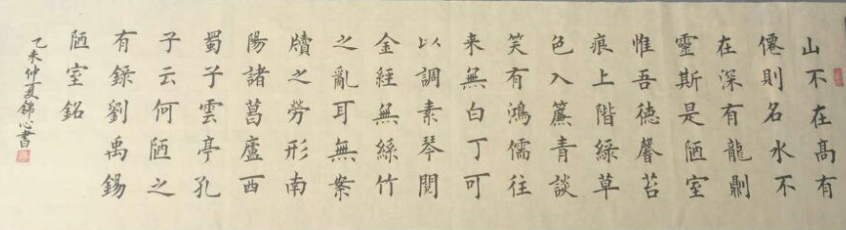 山不在高有
僊則名水不
在深有龍則
靈斯是陋室
惟吾德馨苔
痕上階緑草
色入簾青談
笑有鴻儒往
来無白丁可
以調素琴閱
金経無絲竹
之亂耳無案
牘之勞形南
陽諸葛廬西
蜀子雲亭孔
子云何陋之
有録劉禹錫
陋室銘
乙未仲夏錦心書